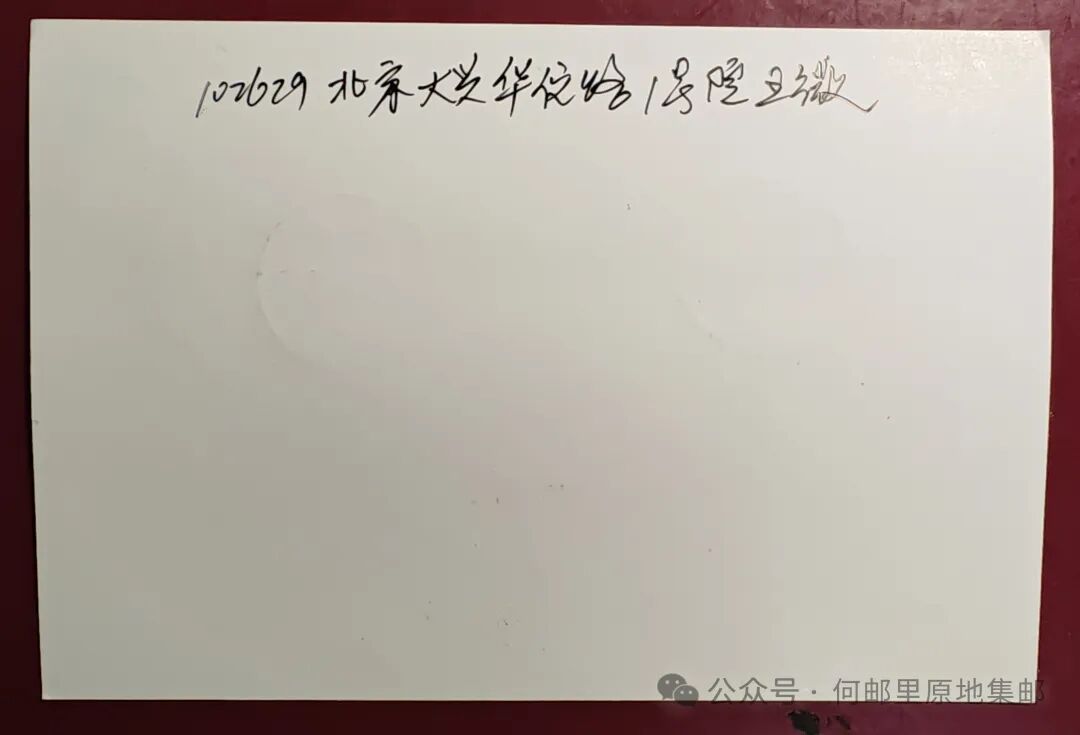 102629 北京大兴华佗路1号院王微
公众号·何邮里原地集邮